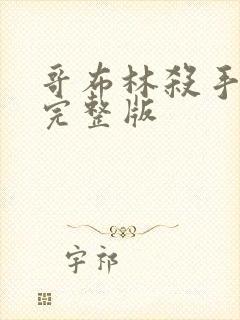 哥布林殺手
完整版
字祁